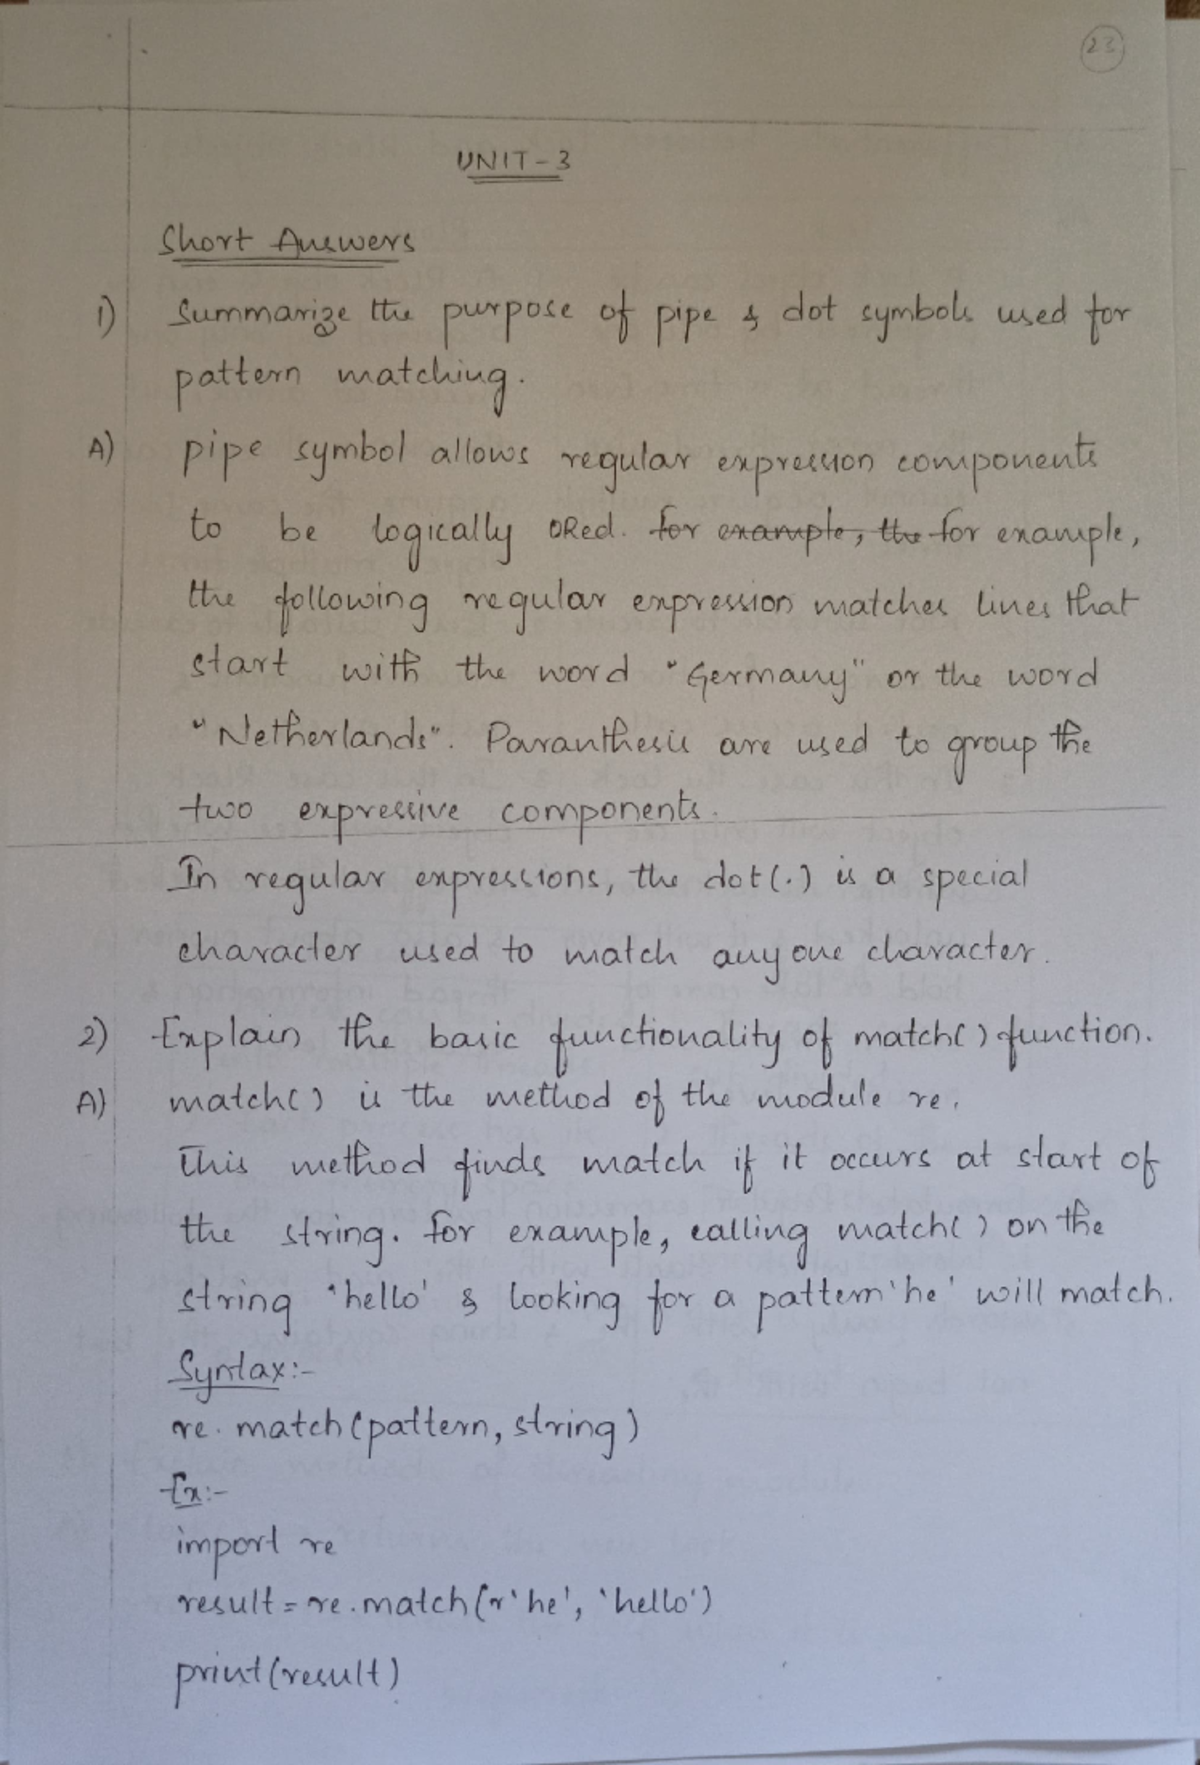 23
UNIT-3
Short Answers
1) Summarize the purpose of pipe & dot symbols used for
pattern matching.
A) pipe symbol allows regular expression components
to be logically ORed. for example, the for example,
the following regular expression matches lines that
start with the word "Germany" or the word
"Netherlands". Paranthesis are used to group the
two expressive components.
In regular expressions, the dot(.) is a special
character used to match any one character.
2) Explain the basic functionality of match() function.
A) match() is the method of the module re.
This method finds match if it occurs at start of
the string. for example, calling match() on the
string 'hello' & looking for a pattern 'he' will match.
Syntax:-
re.match(pattern, string)
Ex:-
import re
result = re.match(r'he', 'hello')
print(result)